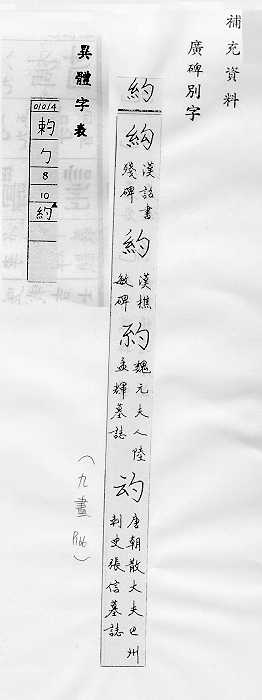 補充資料
廣碑別字
約
漢
書
殘碑
約
漢樵
敏碑
魏元夫人陸
孟輝墓誌
唐朝散大夫巴州
刺史張信墓誌
(九畫 P166)
異體字表
0104
勺
8
10
約